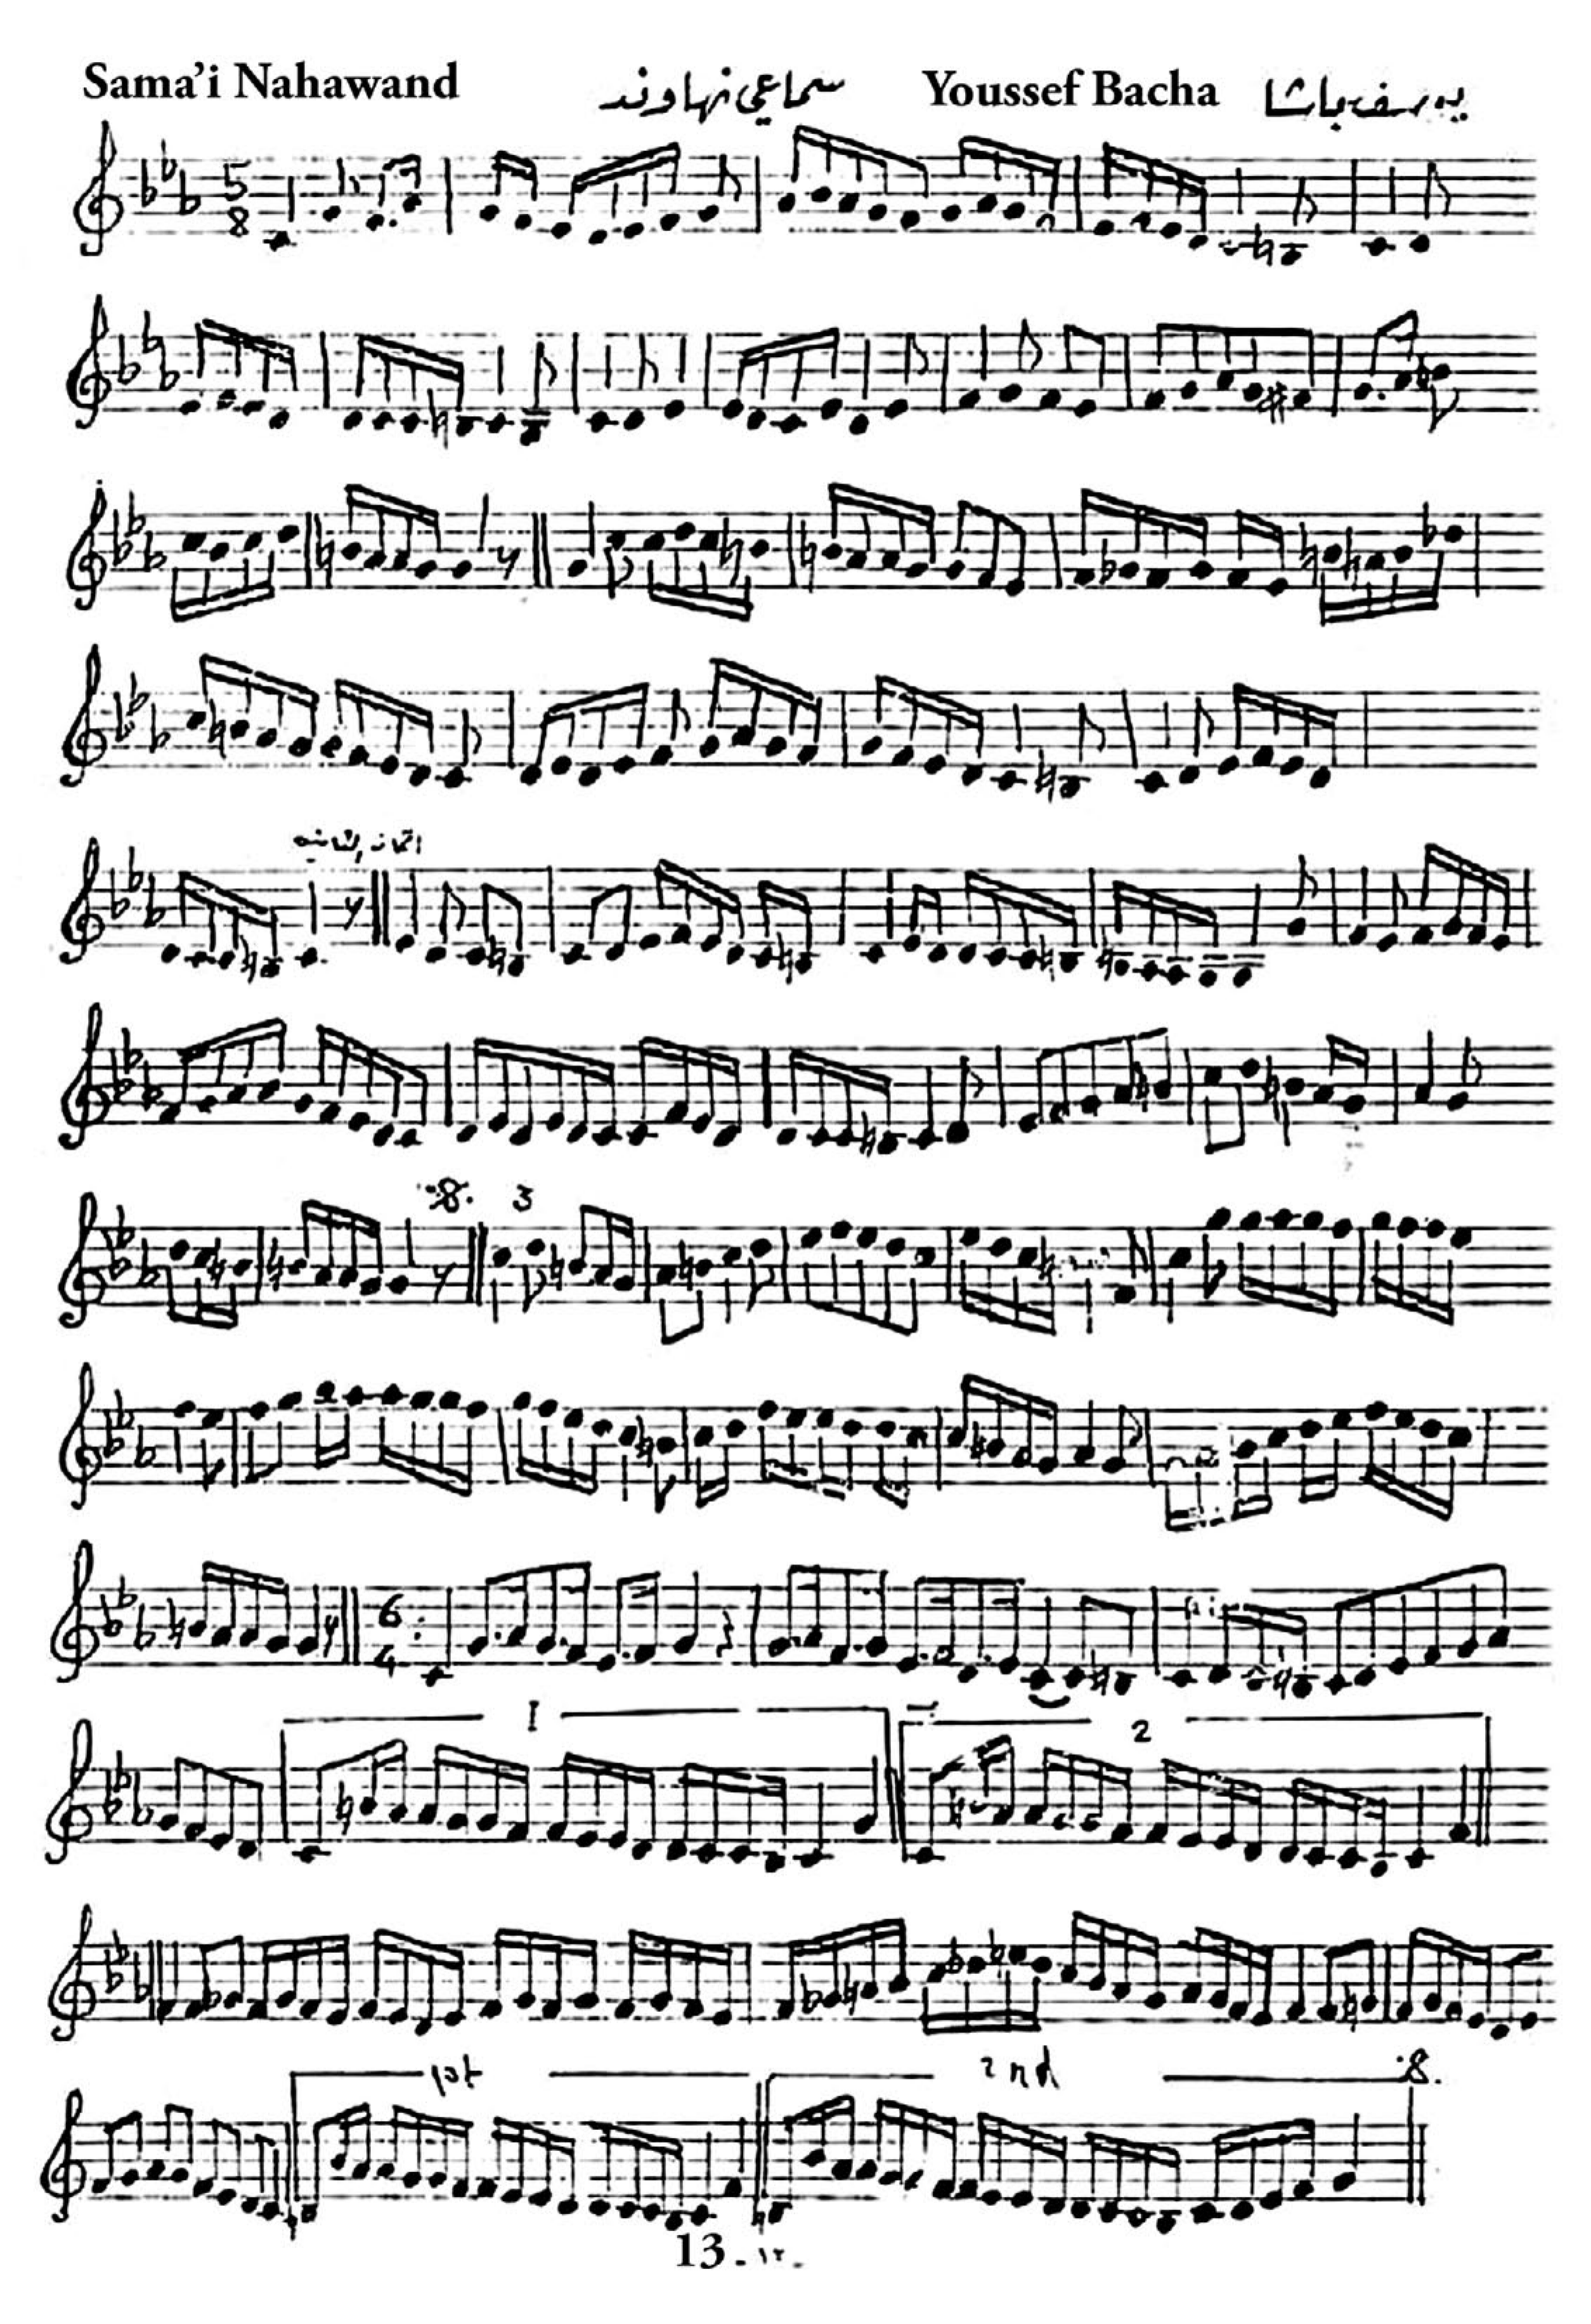 Sama'i Nahawand سماعي نهاوند Youssef Bacha يوسف باشا
5
8
3
6
4
1
2
1st 2nd
13 - ١٣ -